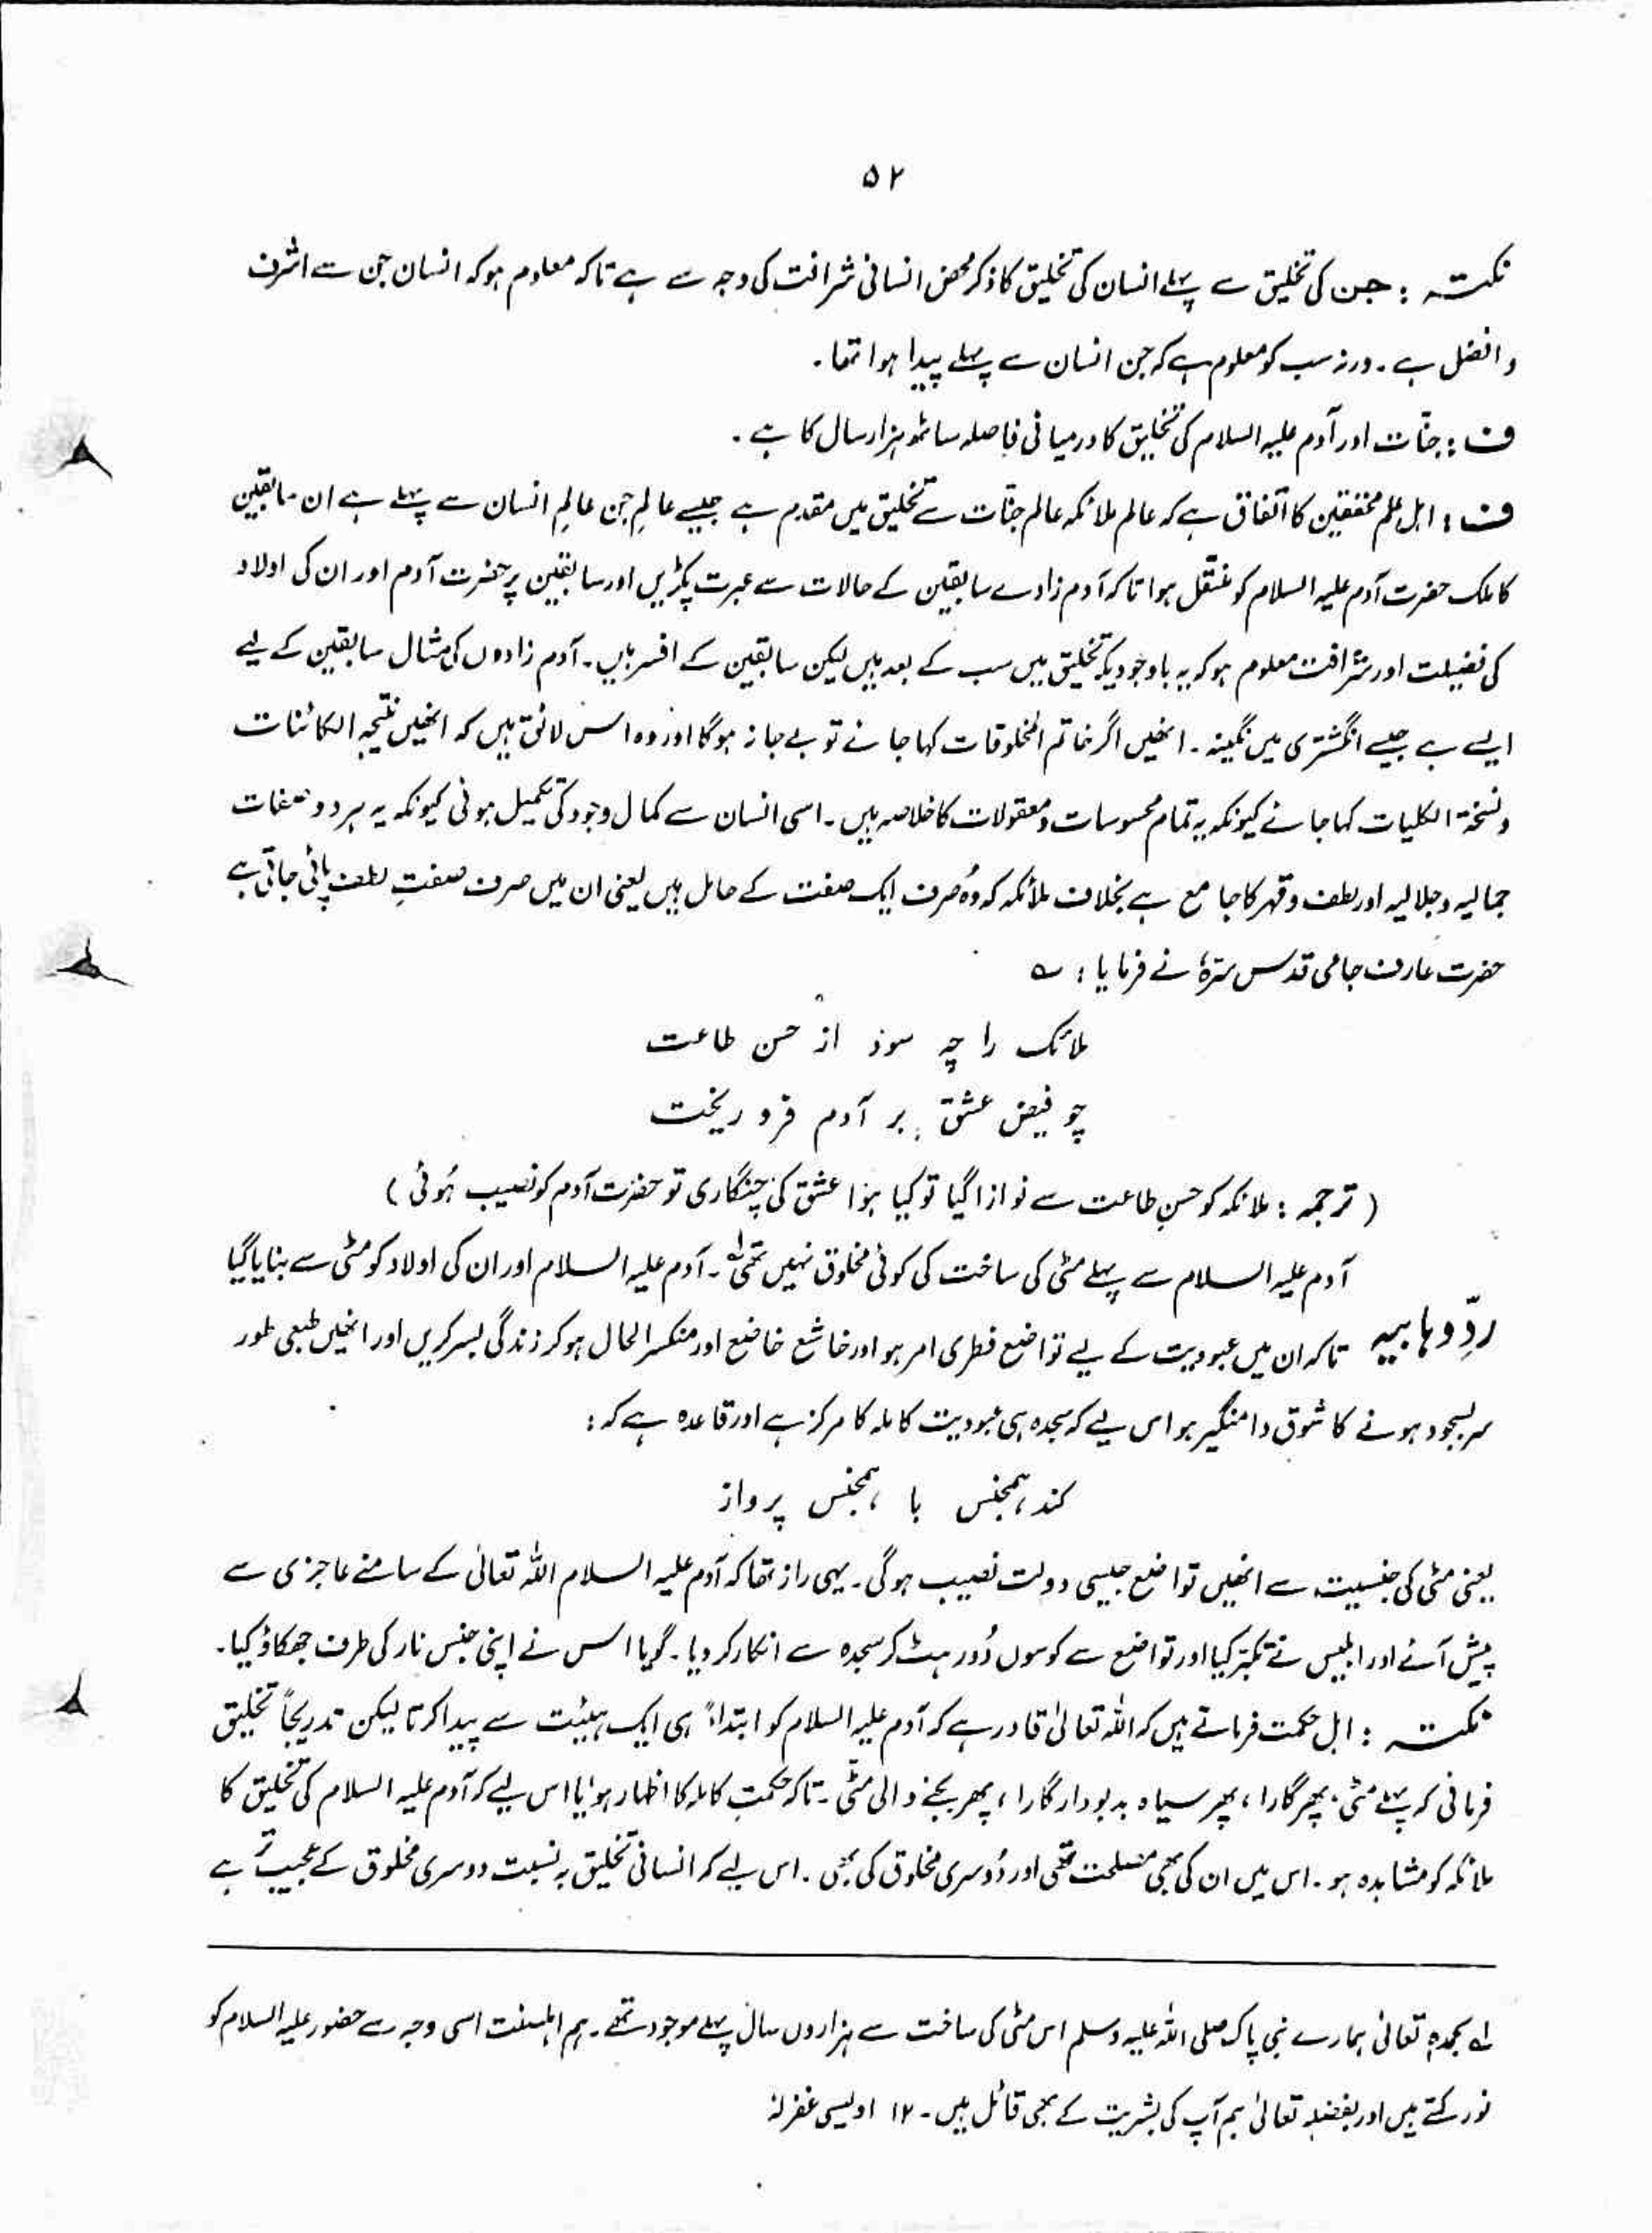 ۵۲
نکتہ : جن کی تخلیق سے پہلے انسان کی تخلیق کا ذکر محض انسانی شرافت کی وجہ سے ہے تاکہ معلوم ہو کہ انسان جن سے اشرف
و افضل ہے ۔ ورنہ سب کو معلوم ہے کہ جن انسان سے پہلے پیدا ہوا تھا ۔
ف : جنّات اور آدم علیہ السلام کی تخلیق کا درمیانی فاصلہ ساٹھ ہزار سال کا ہے ۔
ف : اہل علم محققین کا اتفاق ہے کہ عالم ملائکہ عالم جنّات سے تخلیق میں مقدم ہے جیسے عالمِ جن عالمِ انسان سے پہلے ہے ان سابقین
کا ملک حضرت آدم علیہ السلام کو منتقل ہوا تاکہ آدم زادے سابقین کے حالات سے عبرت پکڑیں اور سابقین پر حضرت آدم اور ان کی اولاد
کی فضیلت اور شرافت معلوم ہو کہ یہ باوجودیکہ تخلیق میں سب کے بعد ہیں لیکن سابقین کے افسر ہیں ۔ آدم زادوں کی مثال سابقین کے لیے
ایسے ہے جیسے انگشتری میں نگینہ ۔ انھیں اگر خاتم المخلوقات کہا جائے تو بے جا نہ ہوگا اور وہ اس لائق ہیں کہ انھیں نتیجۃ الکائنات
و نسخۃ الکلیات کہا جائے کیونکہ یہ تمام محسوسات و معقولات کا خلاصہ ہیں ۔ اسی انسان سے کمال وجود کی تکمیل ہوئی کیونکہ یہ ہر دو صفات
جمالیہ و جلالیہ اور لطف و قہر کا جامع ہے بخلاف ملائکہ کہ وُہ صرف ایک صفت کے حامل ہیں یعنی ان میں صرف صفتِ لطف پائی جاتی ہے
حضرت عارف جامی قدس سرّہٗ نے فرمایا : ؎
ملائک را چہ سود از حسن طاعت
چو فیض عشق بر آدم فرو ریخت
( ترجمہ : ملائکہ کو حسنِ طاعت سے نوازا گیا تو کیا ہُوا عشق کی چنگاری تو حضرت آدم کو نصیب ہُوئی )
آدم علیہ السلام سے پہلے مٹی کی ساخت کی کوئی مخلوق نہیں تھی لہ ۔ آدم علیہ السلام اور ان کی اولاد کو مٹی سے بنایا گیا
ردِّ وہابیہ تاکہ ان میں عبودیت کے لیے تواضع فطری امر ہو اور خاشع خاضع اور منکسر الحال ہو کر زندگی بسر کریں اور انھیں طبعی طور
سربسجود ہونے کا شوق دامنگیر ہو اس لیے کہ سجدہ ہی عبودیت کاملہ کا مرکز ہے اور قاعدہ ہے کہ :
کند ہمجنس با ہمجنس پرواز
یعنی مٹی کی جنسیت سے انھیں تواضع جیسی دولت نصیب ہوگی ۔ یہی راز تھا کہ آدم علیہ السلام اللہ تعالیٰ کے سامنے عاجزی سے
پیش آئے اور ابلیس نے تکبّر کیا اور تواضع سے کوسوں دُور ہٹ کر سجدہ سے انکار کر دیا ۔ گویا اس نے اپنی جنس نار کی طرف جھکاؤ کیا ۔
نکتہ : اہل حکمت فرماتے ہیں کہ اللہ تعالیٰ قادر ہے کہ آدم علیہ السلام کو ابتداءً ہی ایک ہیئیت سے پیدا کرتا لیکن تدریجاً تخلیق
فرمائی کہ پہلے مٹی، پھر گارا ، پھر سیاہ بدبودار گارا ، پھر بجنے والی مٹّی ۔ تاکہ حکمتِ کاملہ کا اظہار ہو یا اس لیے کہ آدم علیہ السلام کی تخلیق کا
ملائکہ کو مشاہدہ ہو ۔ اس میں ان کی بھی مصلحت تھی اور دُوسری مخلوق کی بھی ۔ اس لیے کہ انسانی تخلیق بہ نسبت دوسری مخلوق کے عجیب تر ہے
لہ بحمدہٖ تعالیٰ ہمارے نبی پاک صلی اللہ علیہ وسلم اس مٹی کی ساخت سے ہزاروں سال پہلے موجود تھے ۔ ہم اہلسنت اسی وجہ سے حضور علیہ السلام کو
نور کہتے ہیں اور بفضلہٖ تعالیٰ ہم آپ کی بشریت کے بھی قائل ہیں ۔ ۱۲ اویسی غفرلہٗ